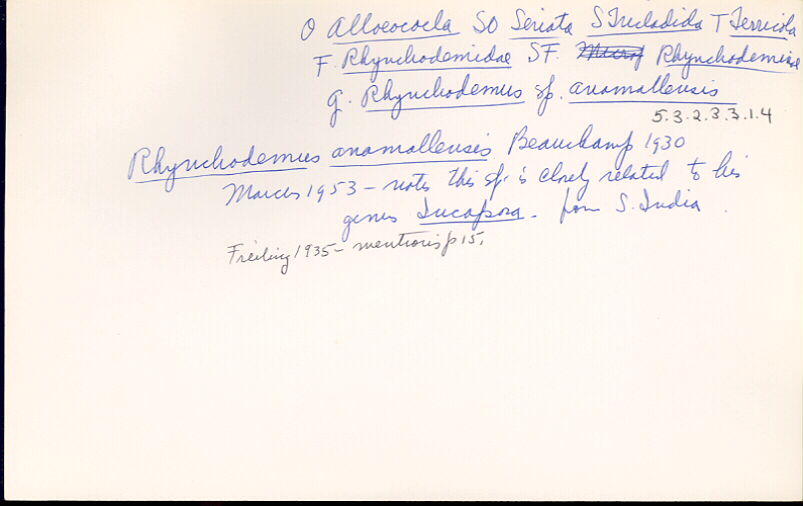 O Alloeocoela SO Seriata S Tricladida T Terricola
F. Rhynchodemidae SF. Rhynchodeminae
g. Rhynchodemus sp. anamallensis
5.3.2.3.3.1.4
Rhynchodemus anamallensis Beauchamp 1930
Marcus 1953 - notes this sp. is closely related to his
genus Incapora. from S. India.
Freiling 1935 - mentions p 15.